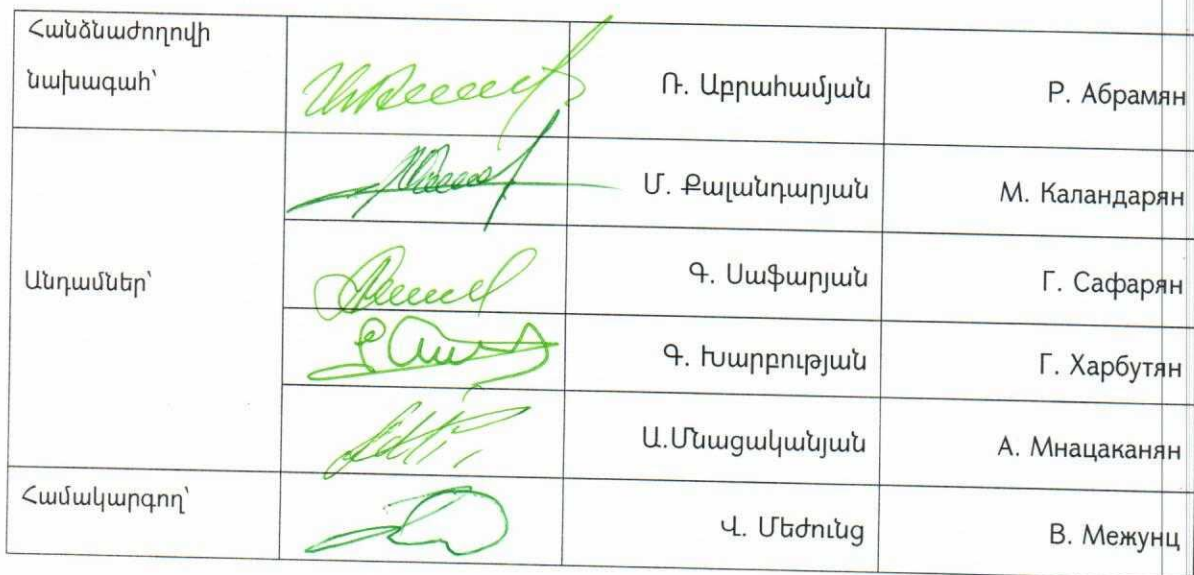 Հանձնաժողովի
նախագահ՝
Ռ. Աբրահամյան
Р. Абрамян
Մ. Քալանդարյան
М. Каландарян
Անդամներ՝
Գ. Սաֆարյան
Г. Сафарян
Գ. Խարբության
Г. Харбутян
Ա.Մնացականյան
А. Мнацаканян
Համակարգող՝
Վ. Մեժունց
В. Межунц